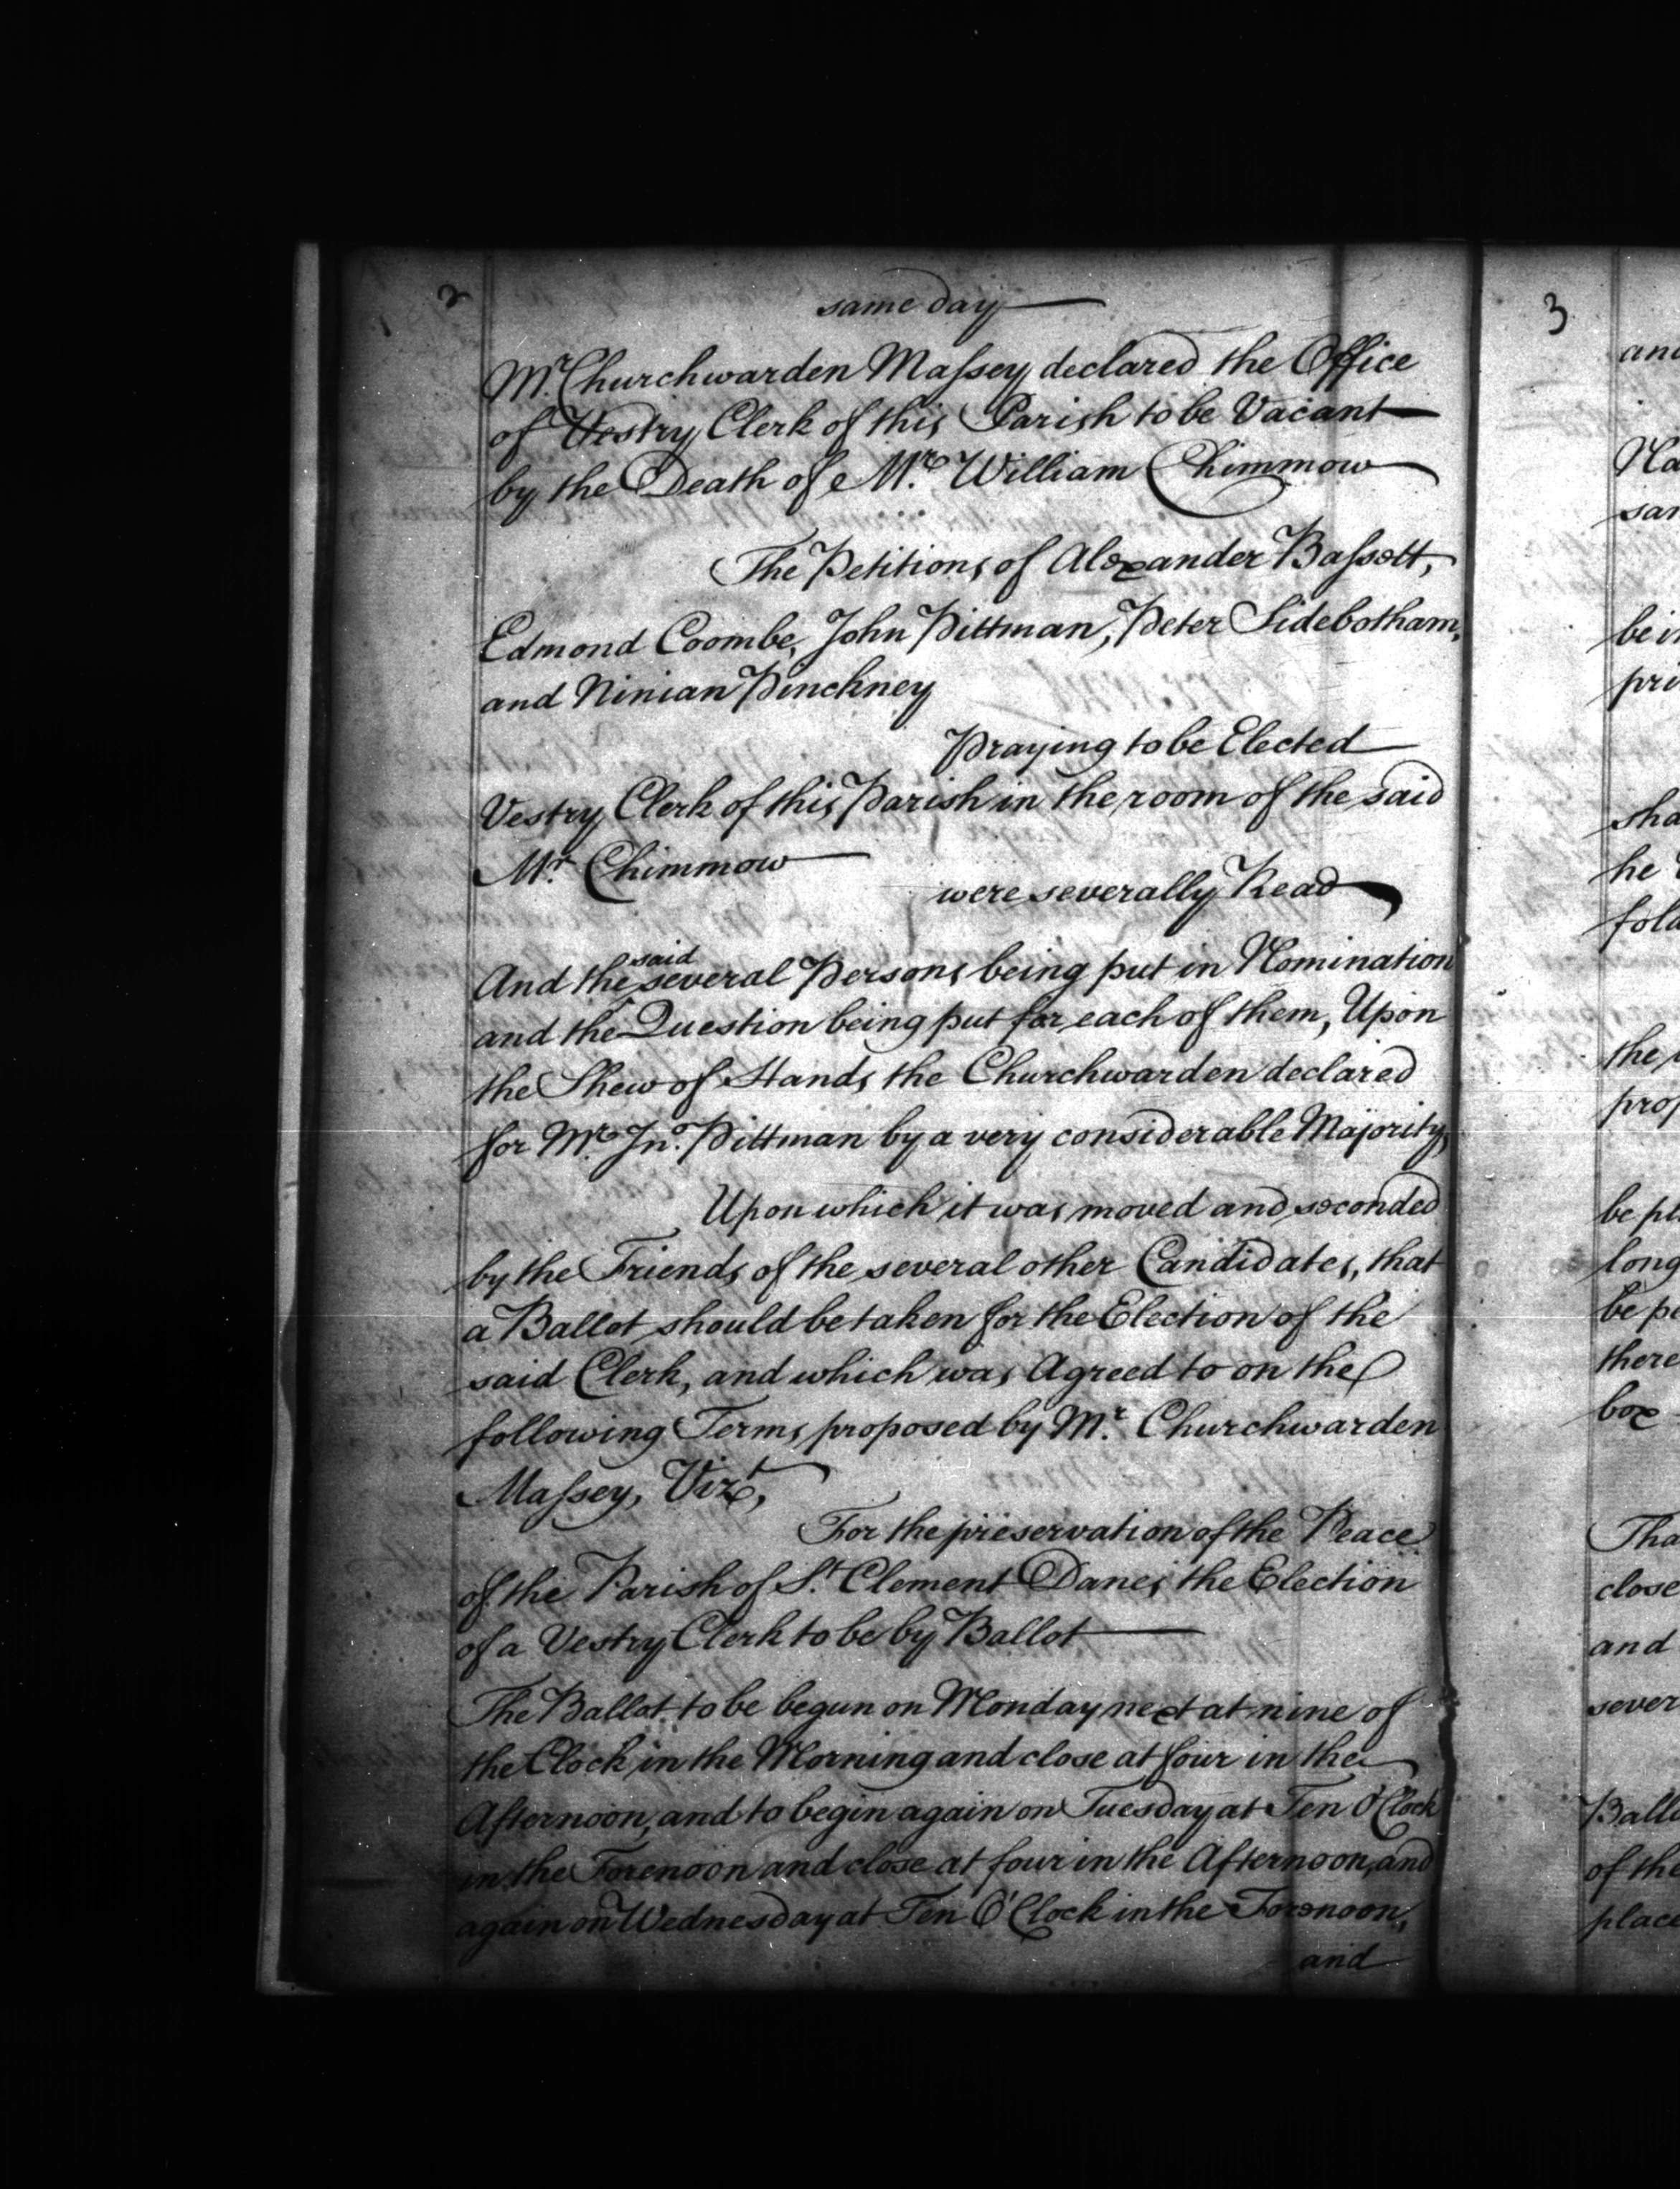 2
same day
Mr. Churchwarden Massey declared the Office
of Vestry Clerk of this Parish to be Vacant
by the Death of Mr. William Chimmow
The Petitions of Alexander Bassett,
Edmond Coombe, John Pittman, Peter Sidebotham,
and Ninian Pinckney
Praying to be Elected
Vestry Clerk of this Parish in the room of the said
Mr. Chimmow
were severally Read
said
And the several Persons being put in Nomination
and the Question being put for each of them, Upon
the Shew of Hands the Churchwarden declared
for Mr. Jno. Pittman by a very considerable Majority,
Upon which it was moved and seconded
by the Friends of the several other Candidates, that
a Ballot should be taken for the Election of the
said Clerk, and which was Agreed to on the
following Terms proposed by Mr. Churchwarden
Massey, Vizt,
For the preservation of the Peace
of the Parish of St. Clement Danes the Election
of a Vestry Clerk to be by Ballot
The Ballot to be begun on Monday next at nine of
the Clock in the Morning and close at four in the
Afternoon, and to begin again on Tuesday at Ten O'Clock
in the Forenoon and close at four in the Afternoon, and
again on Wednesday at Ten O'Clock in the Forenoon,
and
3
and
be pl
long
be p
there
box
close
and
sever
Ball
of th
place